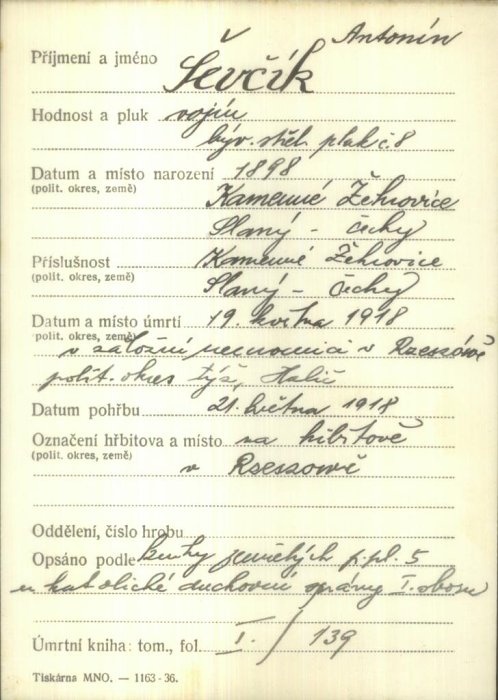 Antonín
Příjmení a jméno Ševčík
Hodnost a pluk vojín
býv. střel. pluk č. 8
Datum a místo narození 1898
(polit. okres, země) Kamenné Žehrovice
Slaný - Čechy
Příslušnost Kamenné Žehrovice
(polit. okres, země) Slaný - Čechy
Datum a místo úmrtí 19. května 1918
polit. okres, země)
v záložní nemocnici v Rzeszowě
polit. okres týž, Halič
Datum pohřbu 21. května 1918
Označení hřbitova a místo na hřbitově
(polit. okres, země) v Rzeszowě
Oddělení, číslo hrobu
Opsáno podle knihy zemřelých p. pl. 5
katolické duchovní správy I. sboru
Úmrtní kniha: tom., fol. I. / 139
Tiskárna MNO. — 1163-36.